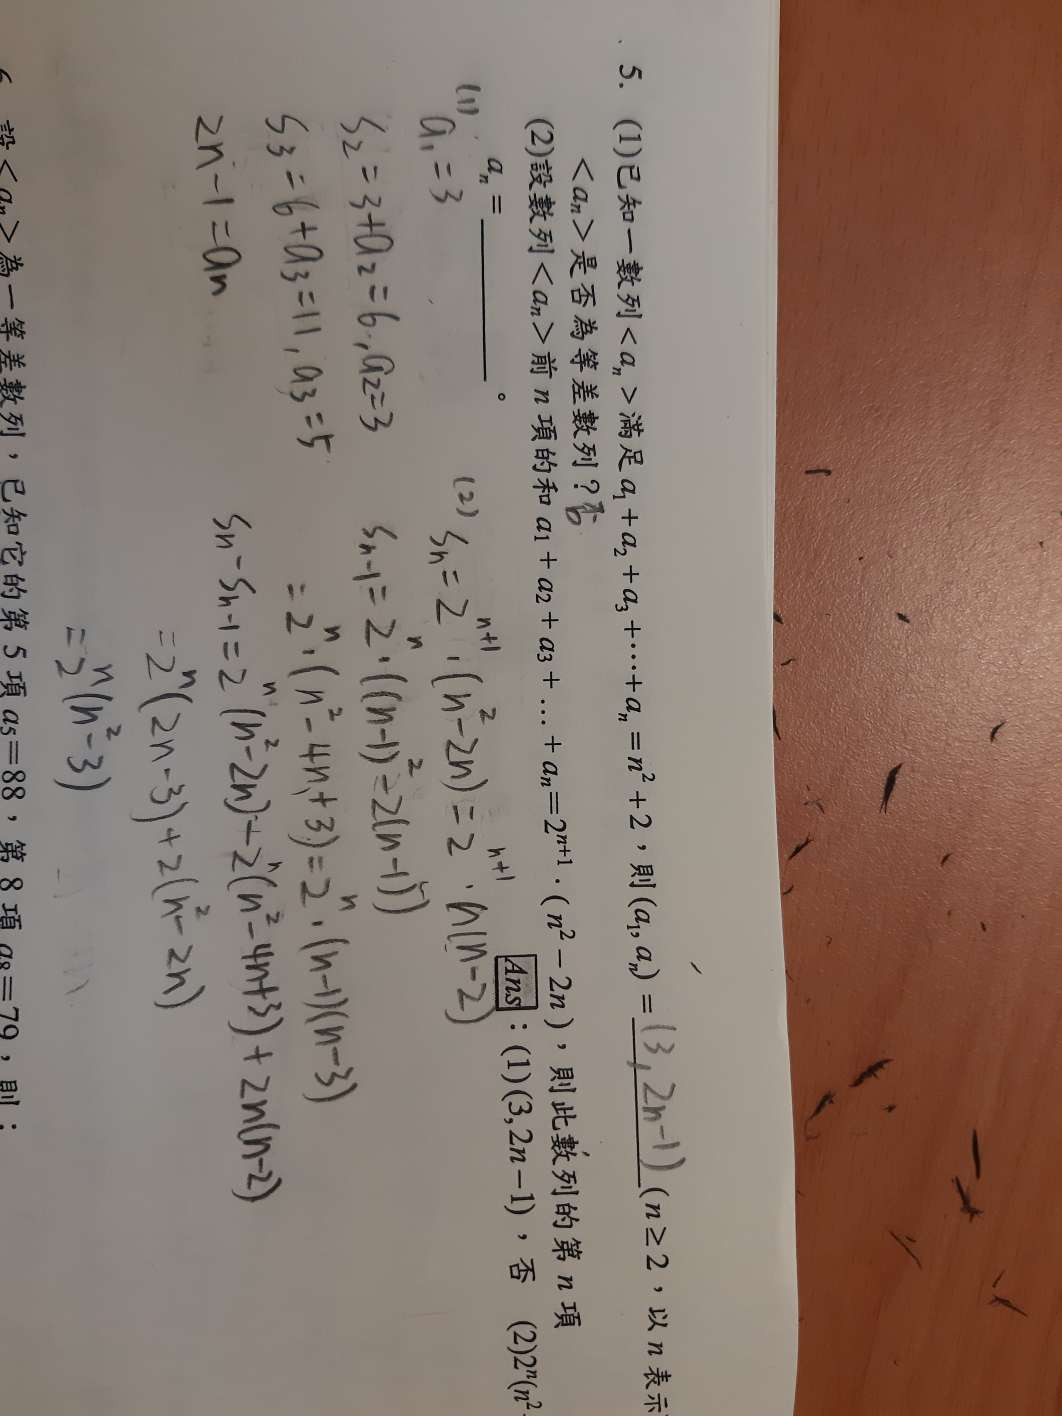 5. (1)已知一數列<aₙ>滿足 a₁+a₂+a₃+⋯+aₙ=n²+2，則(a₁, aₙ)=(3, 2n-1)(n≥2，以 n 表示
<aₙ>是否為等差數列？否
(2)設數列<aₙ>前 n 項的和 a₁+a₂+a₃+…+aₙ=2ⁿ⁺¹·(n²-2n)，則此數列的第 n 項
aₙ=________。
Ans：(1)(3, 2n-1)，否 (2)2ⁿ(n²
(1)
a₁=3
S₂=3+a₂=6, a₂=3
S₃=6+a₃=11, a₃=5
2n-1=aₙ
(2)
Sₙ=2ⁿ⁺¹·(n²-2n)=2ⁿ⁺¹·n(n-2)
Sₙ₋₁=2ⁿ·((n-1)²-2(n-1))
=2ⁿ·(n²-4n+3)=2ⁿ·(n-1)(n-3)
=2ⁿ(n²-3)
6 設<aₙ>為一等差數列，已知它的第 5 項 a₅=88，第 8 項 a₈=79，則：